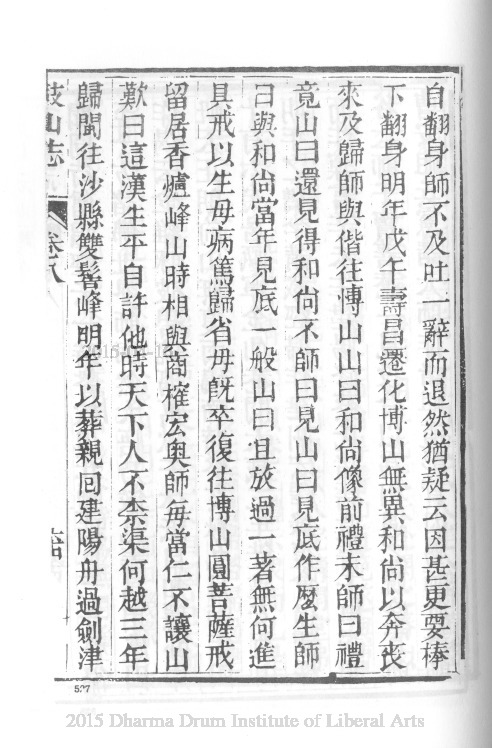 自翻身師不及吐一辭而退然猶疑云因甚更要棒
下翻身明年戊午壽昌遷化博山無異和尚以奔喪
來及歸師與偕往博山山曰和尚像前禮未師曰禮
竟山曰還見得和尚不師曰見山曰見底作麼生師
曰與和尚當年見底一般山曰且放過一著無何進
具戒以生母病篤歸省毋既卒復往博山圓菩薩戒
留居香爐峰山時相與商榷宏奧師每當仁不讓山
歎曰這漢生平自許他時天下人不柰渠何越三年
歸閩往沙縣雙髻峰明年以葬親回建陽舟過劍津
鼓山志 卷八
507
2015 Dharma Drum Institute of Liberal Arts